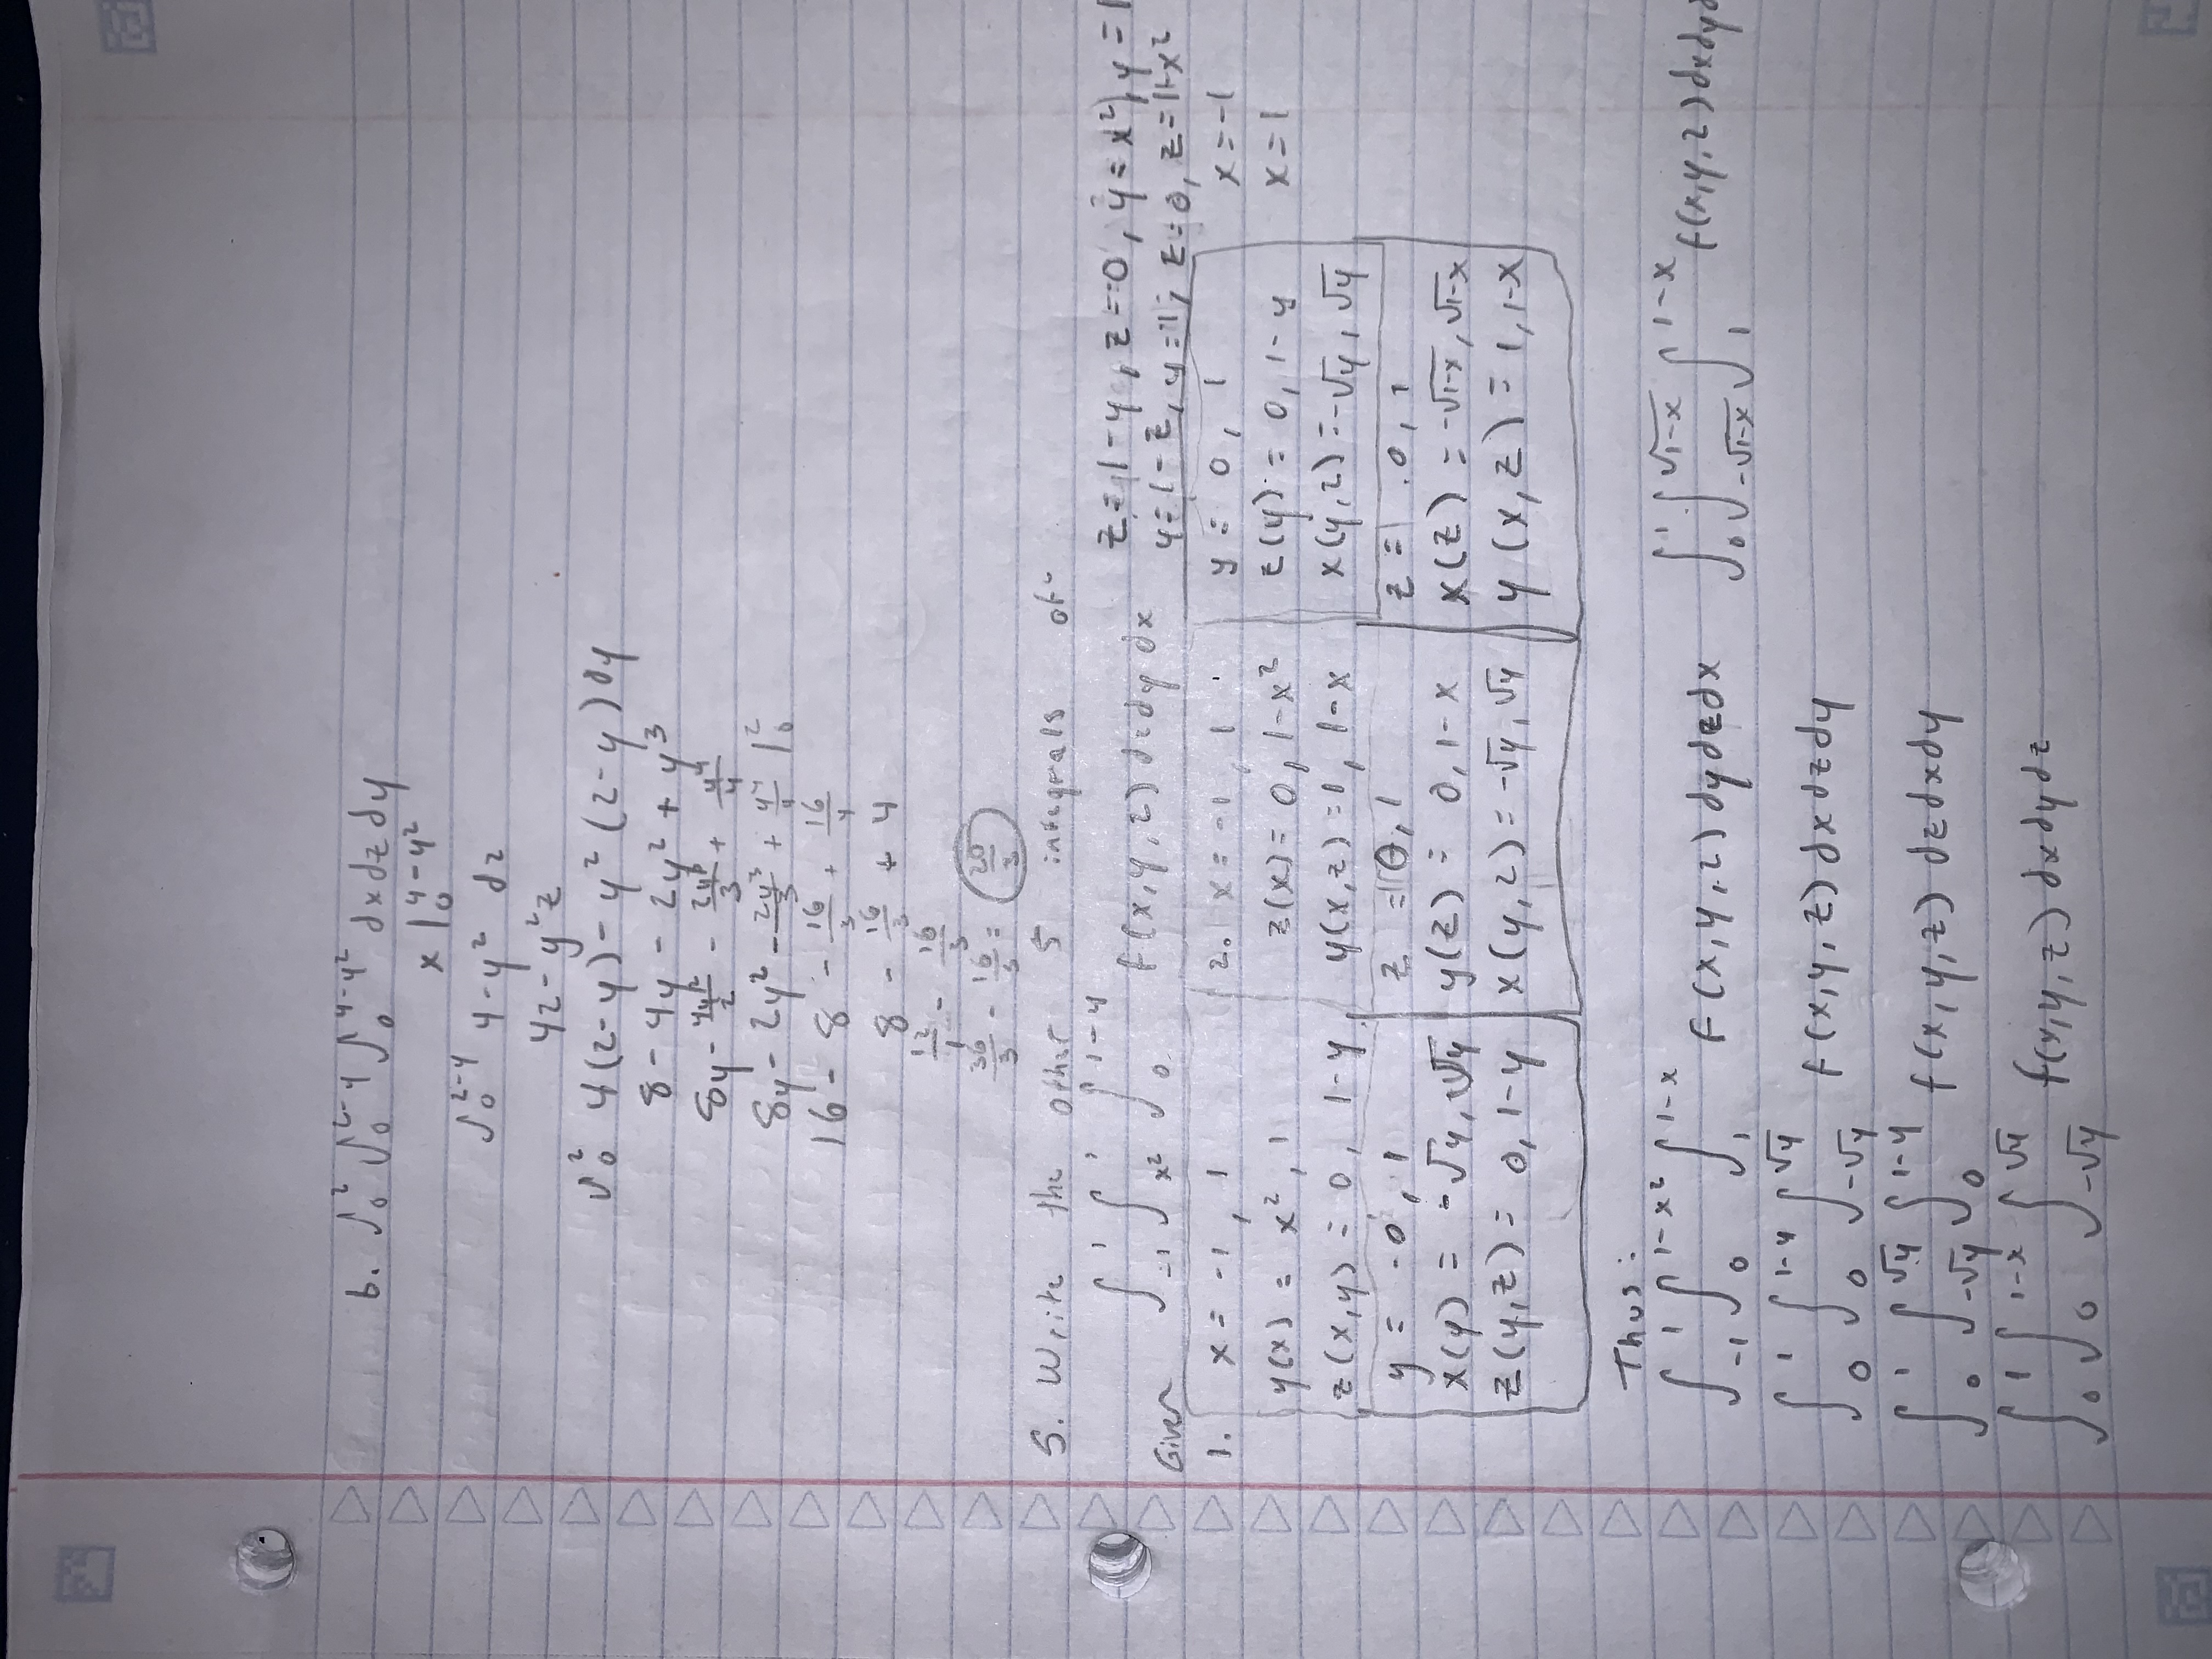 6. ∫₀² ∫₀^(2-y) ∫₀^(4-y²) dx dz dy
x |₀^(4-y²)
∫₀^(2-y) 4-y² dz
4z - y²z
∫₀² 4(2-y) - y²(2-y) dy
8 - 4y - 2y² + y³
8y - 4y²/2 - 2y³/3 + y⁴/4
8y - 2y² - 2y³/3 + y⁴/4 |₀²
16 - 8 - 16/3 + 16/4
8 - 16/3 + 4
12/1 - 16/3
36/3 - 16/3 = 20/3
5. Write the other 5 integrals of
Given ∫₋₁¹ ∫ₓ₂¹ ∫₀^(1-y) f(x,y,z) dz dy dx
z = 1-y, z = 0, y = x², y = 1
y = 1-z, y = 1, z = 0, z = 1-x²
x = -1
x = 1
1. x = -1, 1
y(x) = x², 1
z(x,y) = 0, 1-y
2. x = -1, 1
z(x) = 0, 1-x²
y(x,z) = 1, 1-x
y = 0, 1
z(y) = 0, 1-y
x(y,z) = -√y, √y
y = 0, 1
x(y) = -√y, √y
z(y,z) = 0, 1-y
z = 0, 1
y(z) = 0, 1-x
x(y,z) = -√y, √y
z = 0, 1
x(z) = -√(1-x), √(1-x)
y(x,z) = 1, 1-x
Thus:
∫₋₁¹ ∫₀^(1-x²) ∫₁^(1-x) f(x,y,z) dy dz dx
∫₀¹ ∫_(-√(1-x))^(√(1-x)) ∫₁^(1-x) f(x,y,z) dx dy d
∫₀¹ ∫₀^(1-y) ∫_(-√y)^(√y) f(x,y,z) dx dz dy
∫₀¹ ∫_(-√y)^(√y) ∫₀^(1-y) f(x,y,z) dz dx dy
∫₀¹ ∫₀^(1-x) ∫_(-√y)^(√y) f(x,y,z) dx dy dz